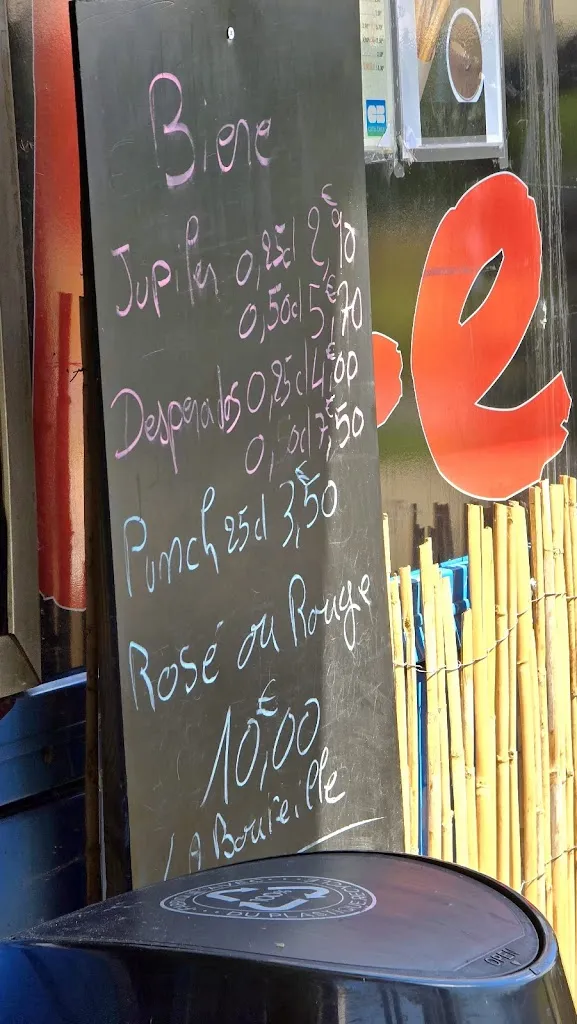 Biere
Jupiler 0,25cl 2,€90
0,50cl 5,€70
Desperados 0,25cl 4,€00
0,50cl 7,€50
Punch 25cl 3,€50
Rosé ou Rouge
10,€00
LA Bouteille
100%
DU PLASTIQUE
OPEN
CB
e